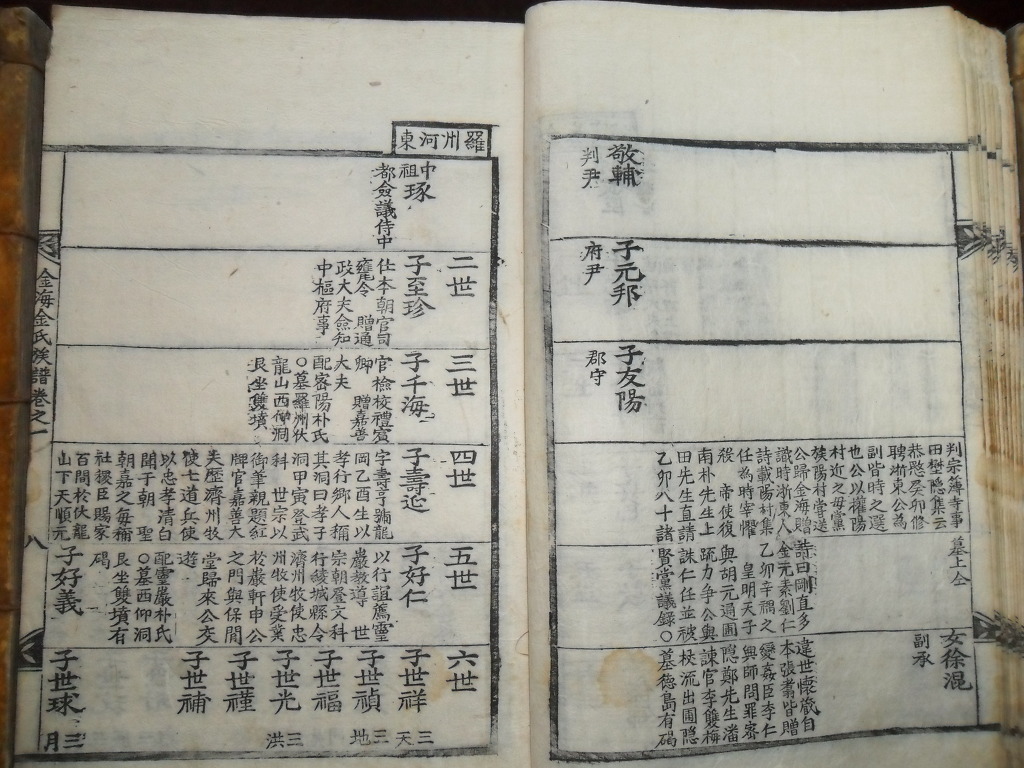 敬輔
判尹
子元邦
府尹
子友陽
郡守
判宗簿寺事
田埜隱集云
恭愍癸卯修
聘浙東公為
訓皆時之選
也公以權陽
村近之每薫
公歸金海贈
識時浙東人
詩載陽村集
任為時宰懼
殺　帝使復
南朴先生上
田先生直請
乙卯八十諸
墓上仝
詩曰剛直多
金元素劉仁
乙卯辛禑之
皇明天子
與胡元通圃
疏力爭公與
誅仁任並被
賢黨議録○
違世懷蔵自
本張翥皆贈
變姦臣李仁
興師問罪審
隱鄭先生潘
諫官李雙梅
杖流出圃隱
墓德島有碣
女徐混
副承
羅州河東
中祖琢
都僉議侍中
二世
子至珍
仕本朝官司
甕令　贈通
政大夫僉知
中樞府事
三世
子千海
官檢校禮賓
卿　贈嘉善
大夫
配密陽朴氏
○墓羅州伏
龍山西仰洞
艮坐雙墳
四世
字壽亭號龍
岡乙酉生以
孝行鄉人稱
其洞曰孝子
洞甲寅登武
科　世宗以
御筆親題紅
牌官嘉善大
夫歷濟州牧
使七道兵使
以忠孝清白
聞于朝　聖
朝嘉之每稱
社稷臣賜家
百間於伏龍
山下天順元
五世
子好仁
以行誼薦靈
巖教導　世
宗朝登文科
行綾城縣令
濟州牧使忠
州牧使受業
於巖軒申公
之門與保閒
堂歸來公交
遊
配靈巖朴氏
○墓西仰洞
艮坐雙墳有
碣
子好義
六世
子世祥
三天
子世禎
三地
子世福
子世光
三洪
子世謹
子世補
子世球
三月
金海金氏族譜卷之一
八